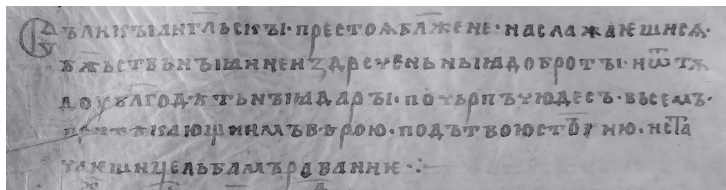 Съ ликꙑ ан҃гльскꙑ· престоѧ бл҃жене· наслажаѥшисѧ·
б҃жьствьнꙑꙗ и неиꙁдреченьнꙑꙗ добротꙑ· и ѿтѫ
доу бл҃годѣтьнꙑꙗ дарꙑ· почьрпъ чюдесъ· вьсемъ·
притѣкающиимъ вѣрою· подъ твою ст҃ꙑню· иста
чаѥши цельбамъ раваниѥ ·:·